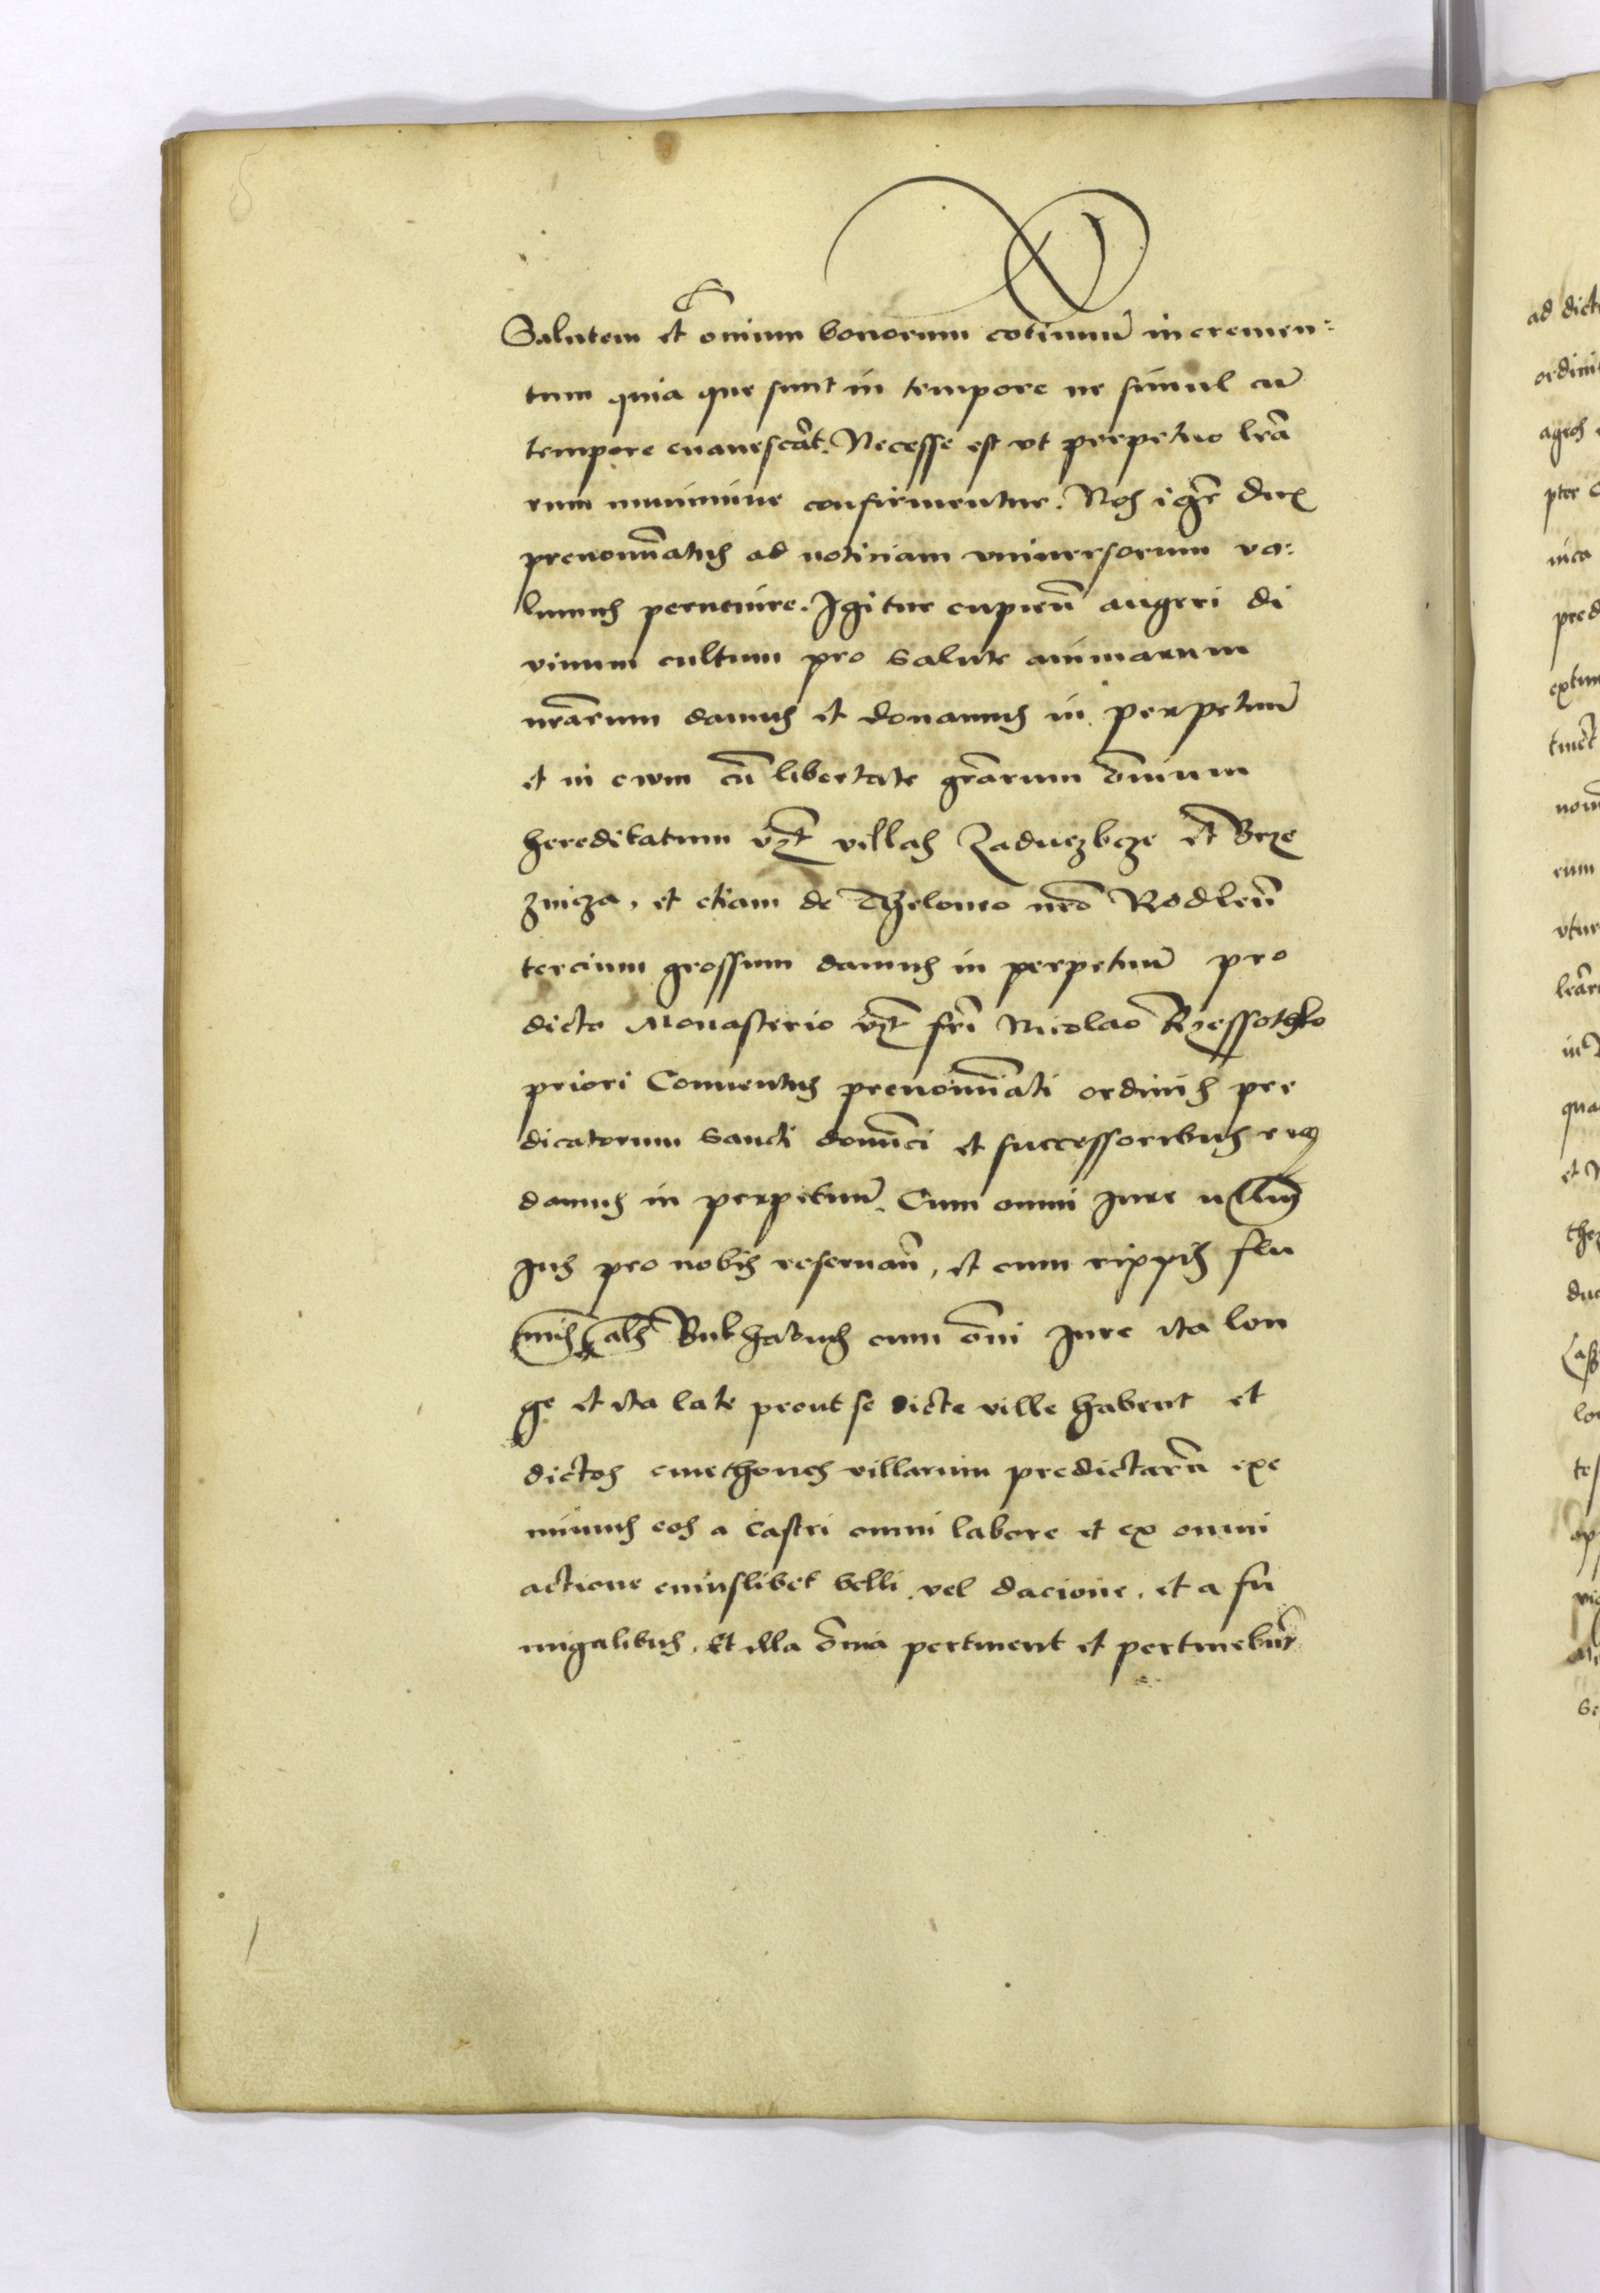 Salutem et om̄ium bonorum cōtinuū incremen:
tum quia que sunt in tempore ne simul cū
tempore euanescāt. Necesse est vt perpetuo lr̄a
rum munimine confirmentur. Nos igr̄ dux
prenoīatus ad noticiam vniuersorum vo:
lumus peruenire. Igitur cupien̄ augeri di
vinum cultum pro salute animarum
nr̄arum damus et donamus in perpetuū
et in ewm cū libertate gr̄arum om̄ium
hereditatum vz̄t villas Zaduezbcze et Brze
znicza, et etiam de Theloneo nr̄o Rodlen̄
tercium grossum damus in perpetuū pro
dicto Monasterio vz̄t fr̄i Nicolao Rzessothko
priori Conuentus prenoīati ordinis pre
dicatorum sancti domīci et successoribus eius
damus in perpetuū. Cum omni Jure nullum
Jus pro nobis reseruan̄, et cum rippis flu
minis als Bukhatus cum om̄i Jure ita lon
ge et ita late prout se dicte ville habent et
dictos cmethones villarum predictarū exe
mimus eos a castri omni labore et ex omni
actione cuiuslibet belli vel dacione, et a fu
migalibus. Et illa om̄ia pertinent et pertinebūt
ad dict